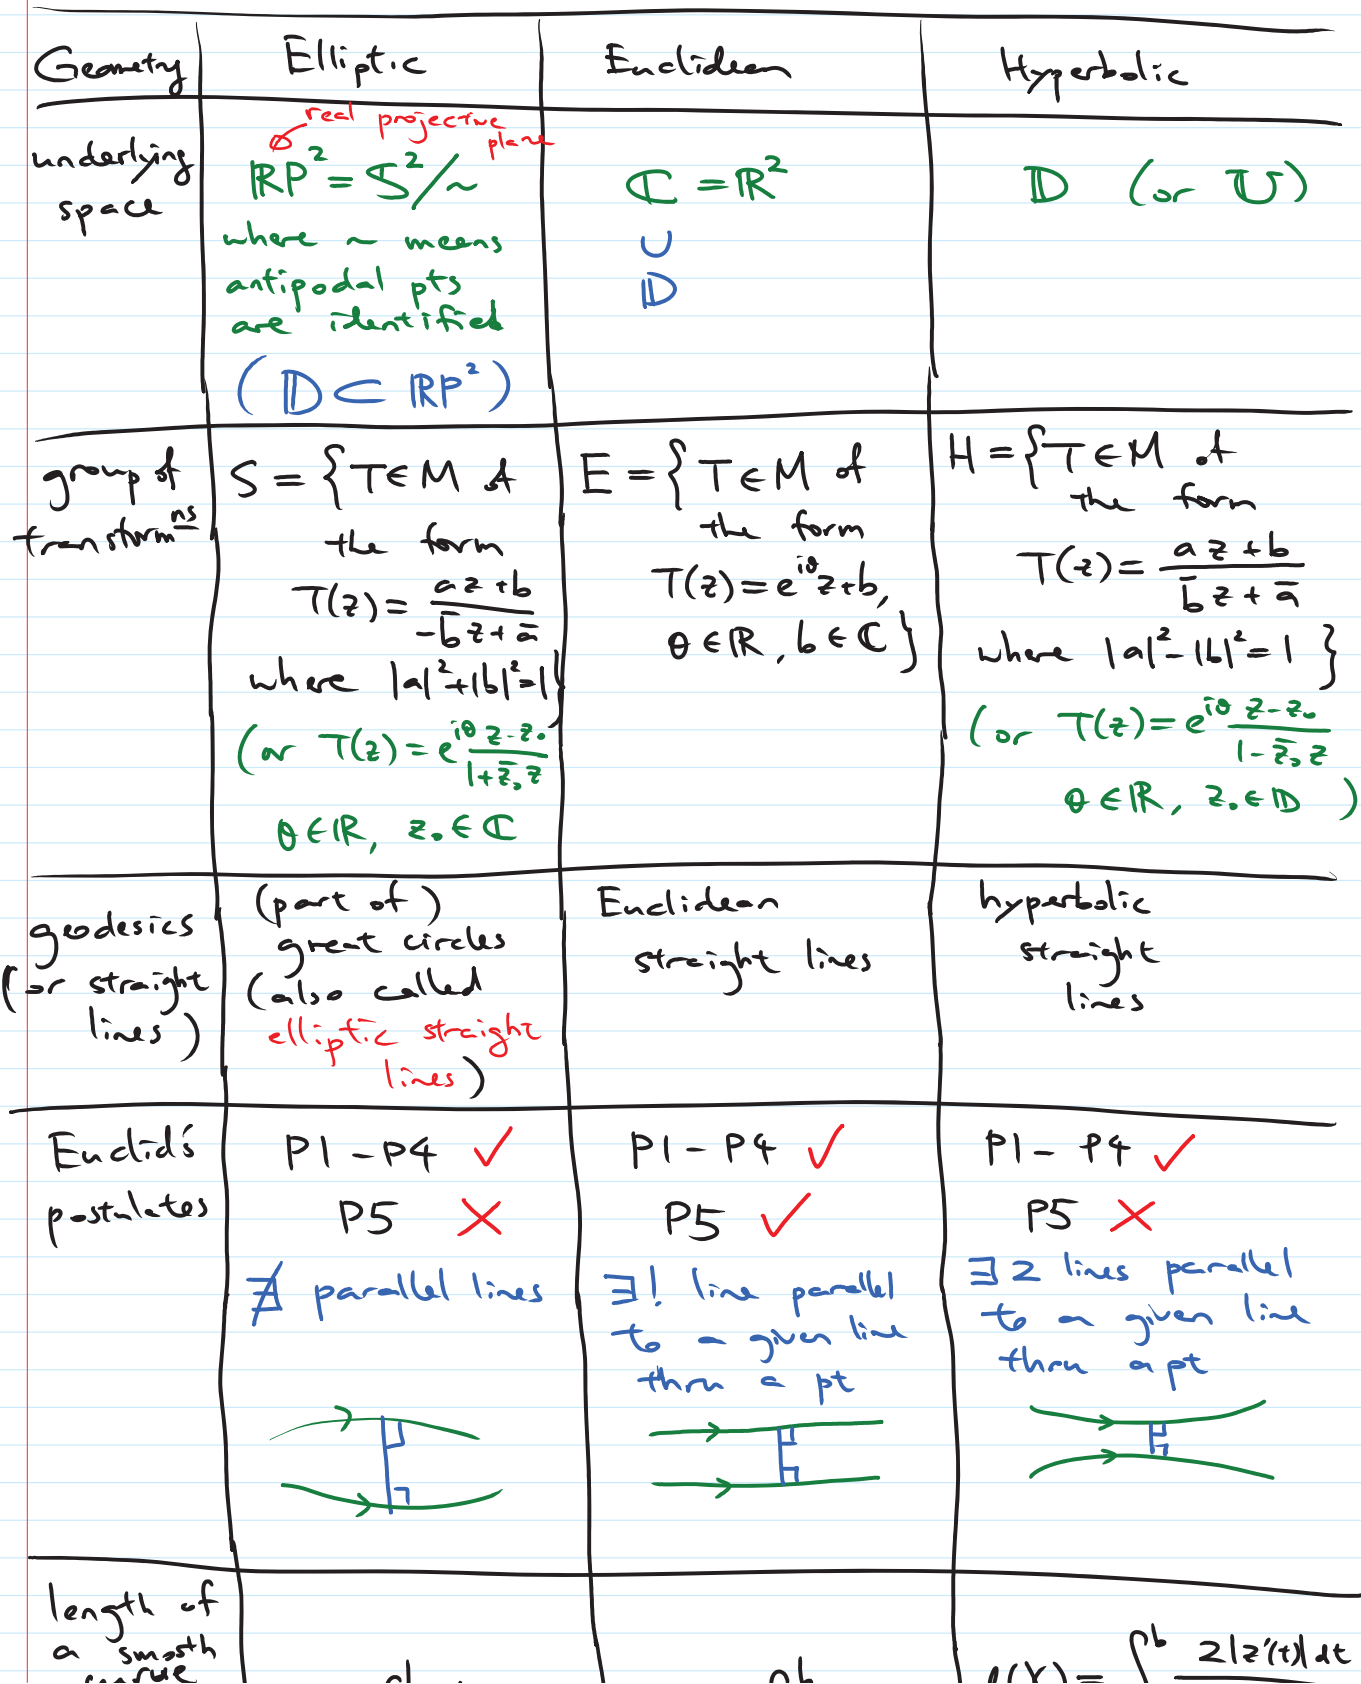 Geometry Elliptic Euclidean Hyperbolic
underlying
space
real projective
plane
ℝP² = S²/~
where ~ means
antipodal pts
are identified
(𝔻 ⊂ ℝP²)
ℂ = ℝ²
∪
𝔻
𝔻 (or 𝕌)
group of
transformns
S = {T∈M of
the form
T(z) = (az+b)/(-b̄z+ā)
where |a|²+|b|²=1}
(or T(z) = e^{iθ} (z-z₀)/(1+z̄₀z)
θ∈ℝ, z₀∈ℂ
E = {T∈M of
the form
T(z) = e^{iθ}z+b,
θ∈ℝ, b∈ℂ}
H = {T∈M of
the form
T(z) = (az+b)/(b̄z+ā)
where |a|²-|b|²=1}
(or T(z) = e^{iθ} (z-z₀)/(1-z̄₀z)
θ∈ℝ, z₀∈𝔻)
geodesics
(or straight
lines)
(part of)
great circles
(also called
elliptic straight
lines)
Euclidean
straight lines
hyperbolic
straight
lines
Euclid's
postulates
P1-P4 ✓
P5 ✗
∄ parallel lines
P1-P4 ✓
P5 ✓
∃! line parallel
to a given line
thru a pt
P1-P4 ✓
P5 ✗
∃ 2 lines parallel
to a given line
thru a pt
length of
a smooth
curve
∫ b 2|z'(t)|dt